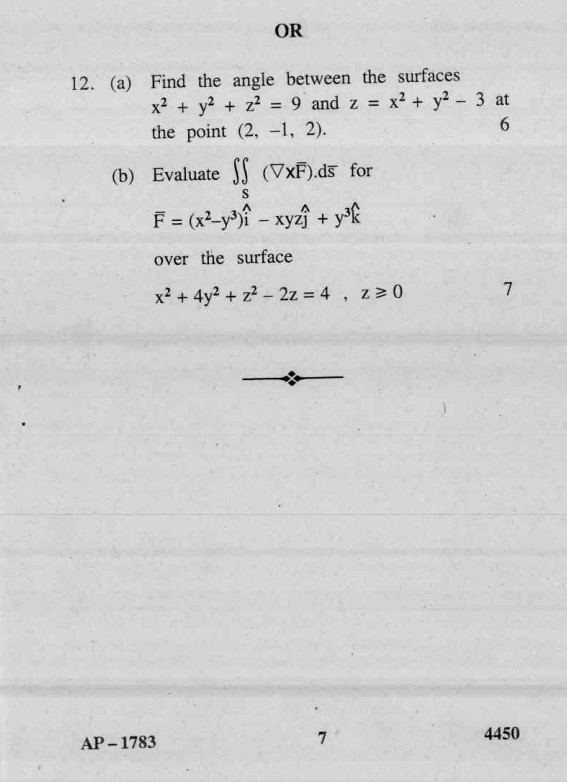 OR
12. (a) Find the angle between the surfaces
x² + y² + z² = 9 and z = x² + y² − 3 at
the point (2, −1, 2). 6
(b) Evaluate ∬ (∇xF̅).ds̅ for
S
F̅ = (x²–y³)î − xyzĵ + y³k̂
over the surface
x² + 4y² + z² − 2z = 4 , z ⩾ 0 7
AP – 1783 7 4450